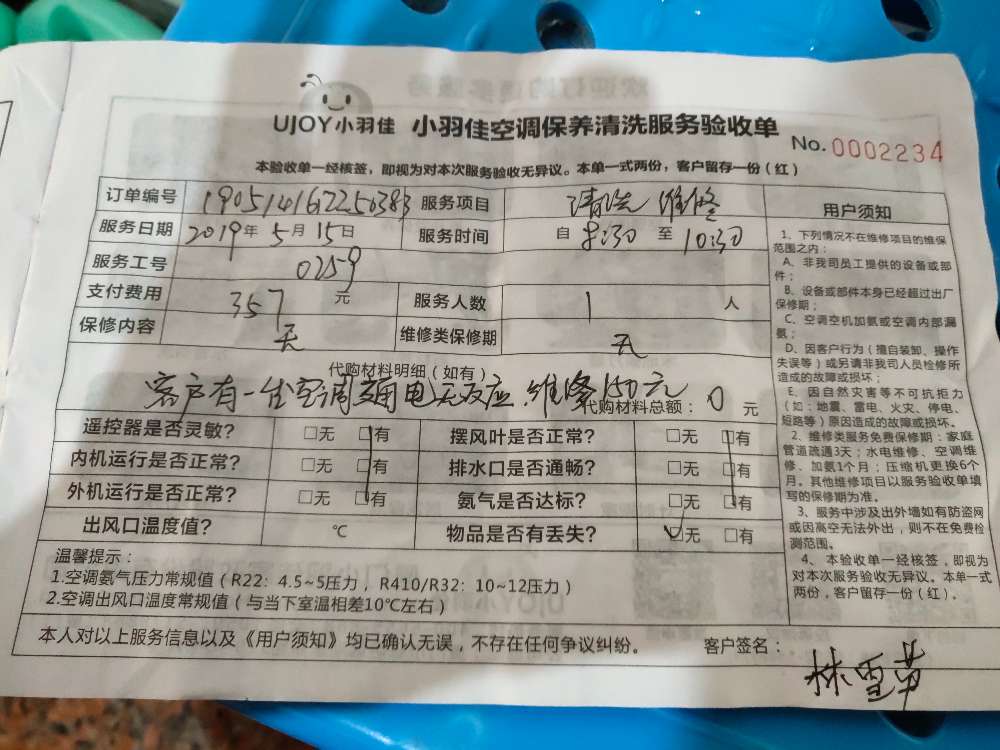 UJOY小羽佳 小羽佳空调保养清洗服务验收单
No. 0002234
本验收单一经核签，即视为对本次服务验收无异议。本单一式两份，客户留存一份（红）
订单编号 服务项目 清洗 维修
服务日期 2019年 5月 15日 服务时间 自 至 10:30
服务工号 0259
支付费用 357 元 服务人数 1 人
保修内容 无 维修类保修期 无
代购材料明细（如有）
客户有一台空调通电无反应.维修150元
代购材料总额： 0 元
遥控器是否灵敏？ □无 □有 摆风叶是否正常？ □无 □有
内机运行是否正常？ □无 □有 排水口是否通畅？ □无 □有
外机运行是否正常？ □无 □有 氨气是否达标？ □无 □有
出风口温度值？ ℃ 物品是否有丢失？ □无 □有
温馨提示：
1.空调氨气压力常规值（R22：4.5~5压力，R410/R32：10~12压力）
2.空调出风口温度常规值（与当下室温相差10℃左右）
本人对以上服务信息以及《用户须知》均已确认无误，不存在任何争议纠纷。 客户签名：
用户须知
1、下列情况不在维修项目的维保
范围之内：
A、非我司员工提供的设备或部
件；
B、设备或部件本身已经超过出厂
保修期；
C、空调空机加氨或空调内部漏
氨；
D、因客户行为（擅自装卸、操作
失误等）或另请非我司人员检修所
造成的故障或损坏；
E、因自然灾害等不可抗拒力
（如：地震、雷电、火灾、停电、
短路等）原因造成的故障或损坏。
2、维修类服务免费保修期：家庭
管道疏通3天；水电维修、空调维
修、加氨1个月；压缩机更换6个
月。其他维修项目以服务验收单填
写的保修期为准。
3、服务中涉及出外墙如有防盗网
或因高空无法外出，则不在免费检
测范围。
4、本验收单一经核签，即视为
对本次服务验收无异议。本单一式
两份，客户留存一份（红）。